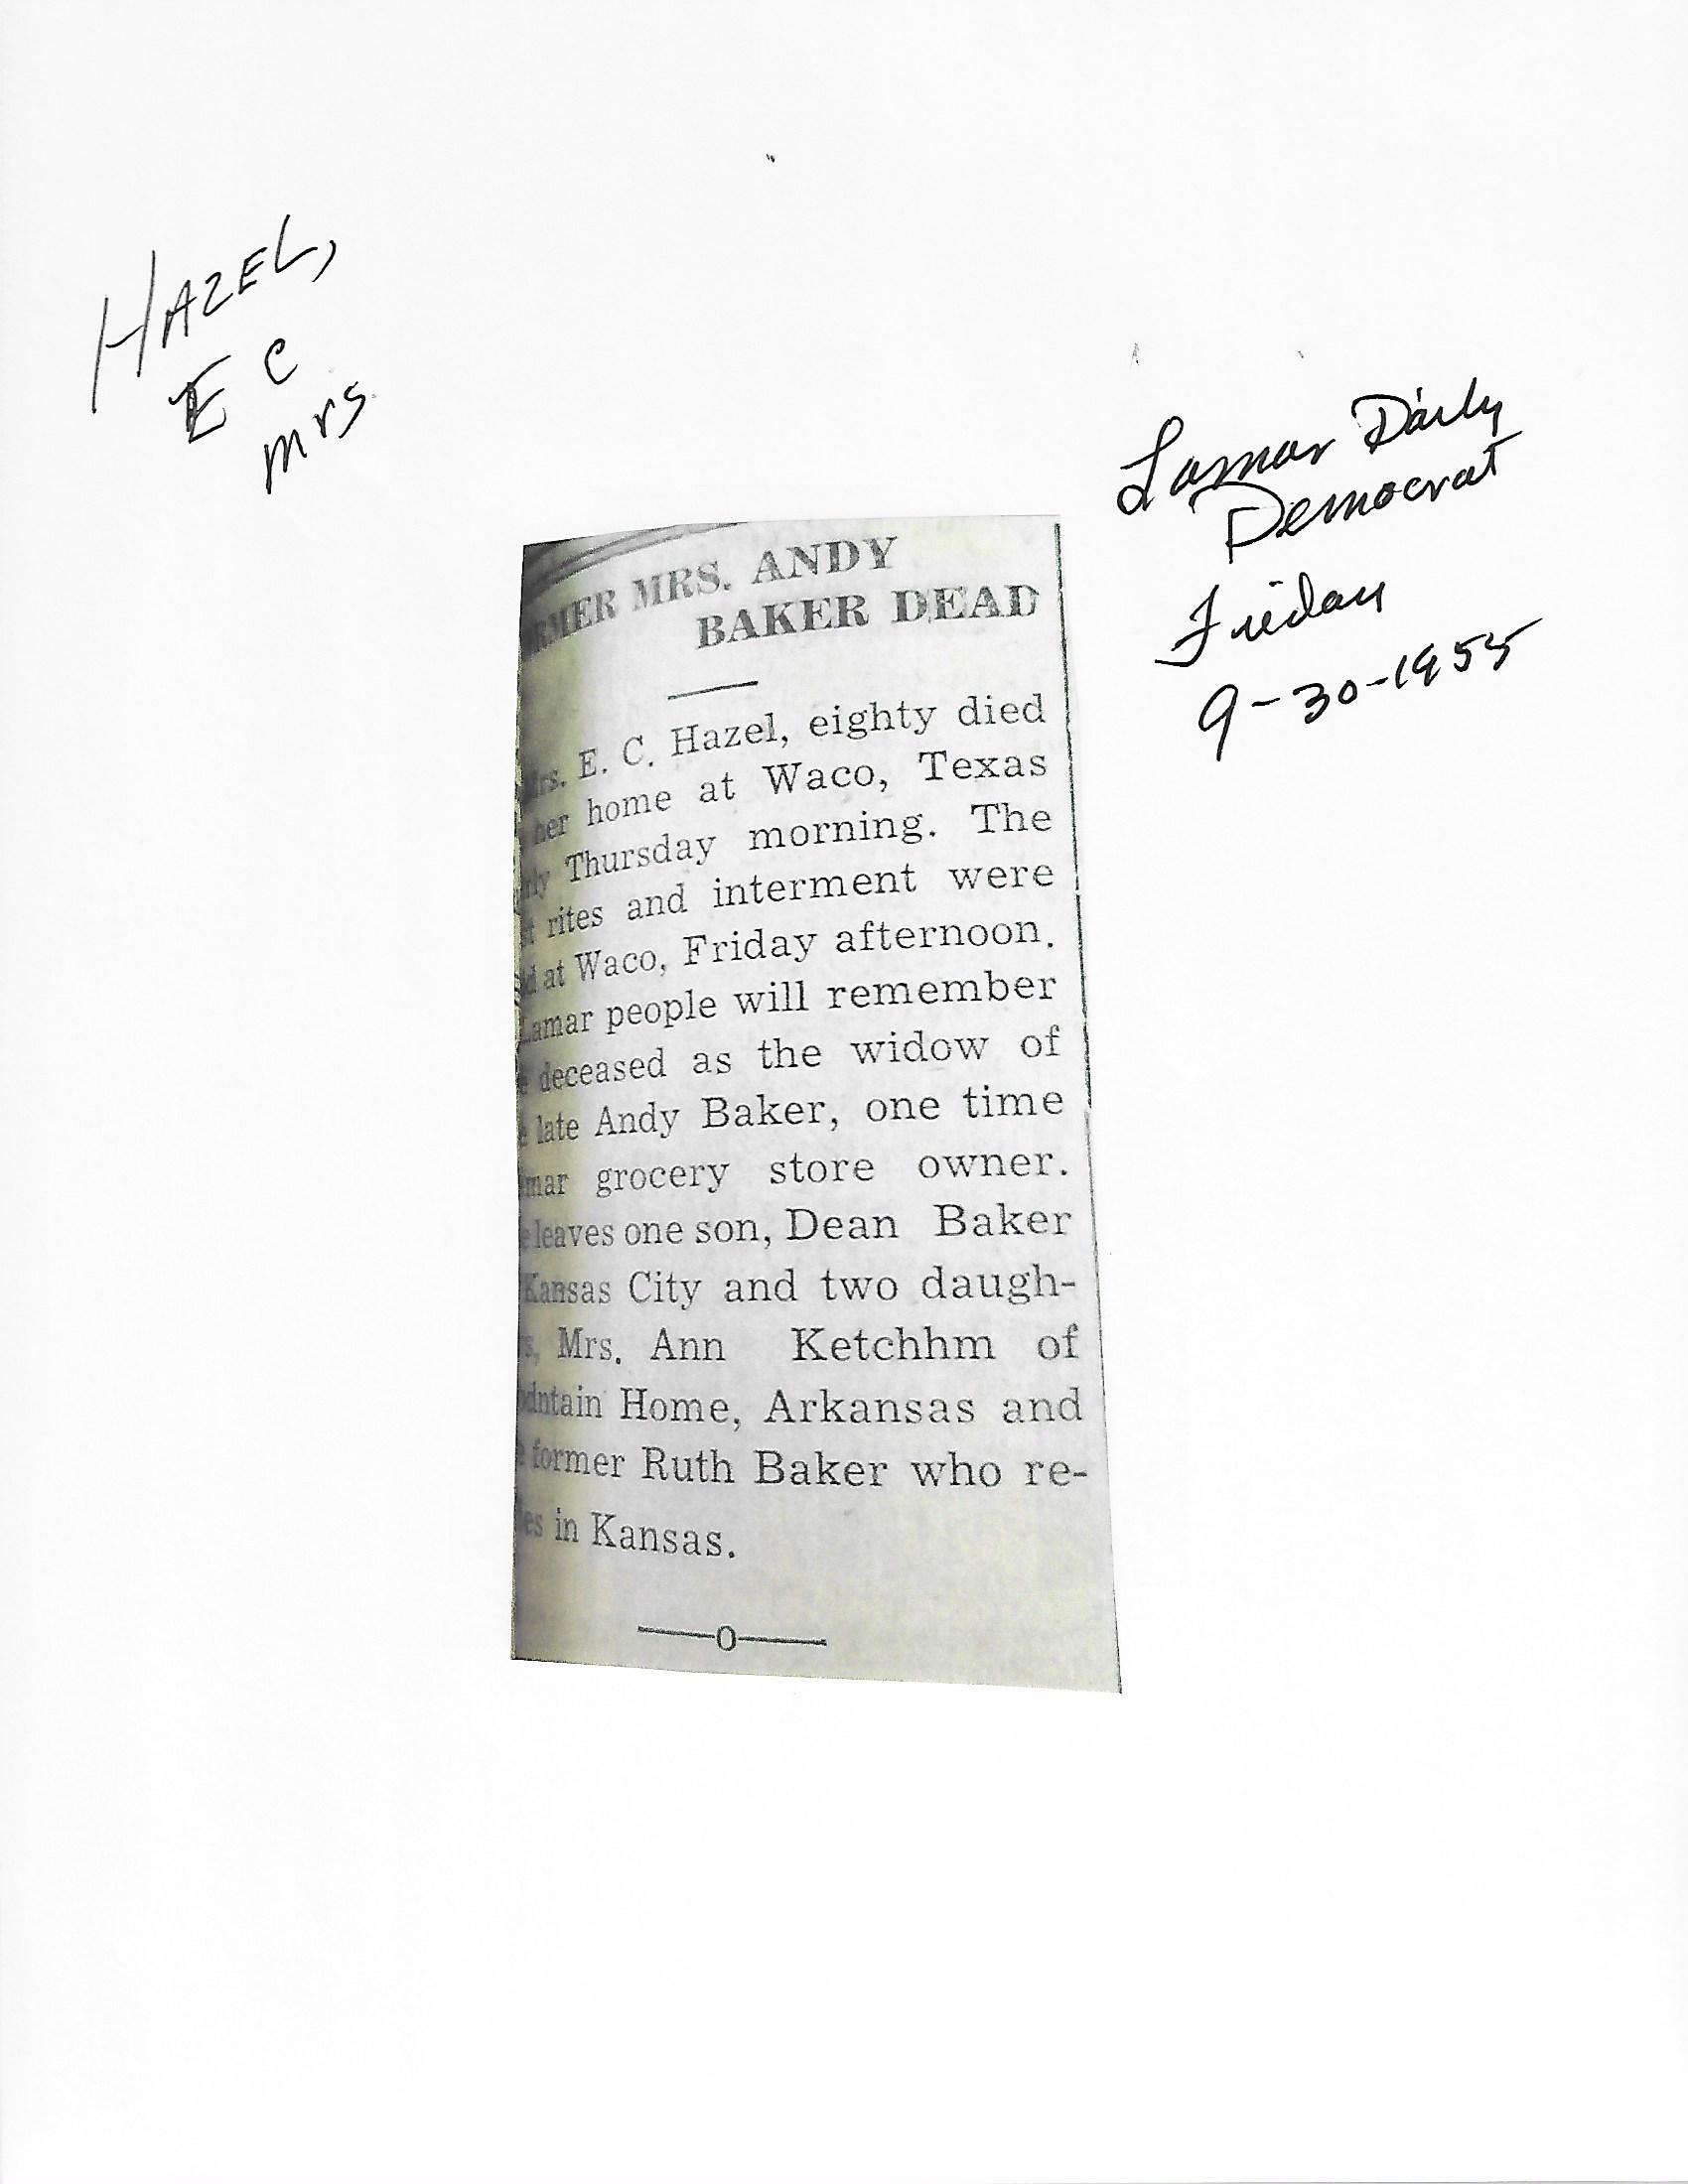 HAZEL,
E C
mrs
Lamar Daily
Democrat
Friday
9-30-1955
RMER MRS. ANDY
BAKER DEAD
rs. E. C. Hazel, eighty died
her home at Waco, Texas
ly Thursday morning. The
t rites and interment were
d at Waco, Friday afternoon.
Lamar people will remember
e deceased as the widow of
e late Andy Baker, one time
mar grocery store owner.
e leaves one son, Dean Baker
Kansas City and two daugh-
s, Mrs. Ann Ketchhm of
ntain Home, Arkansas and
e former Ruth Baker who re-
es in Kansas.
—o—